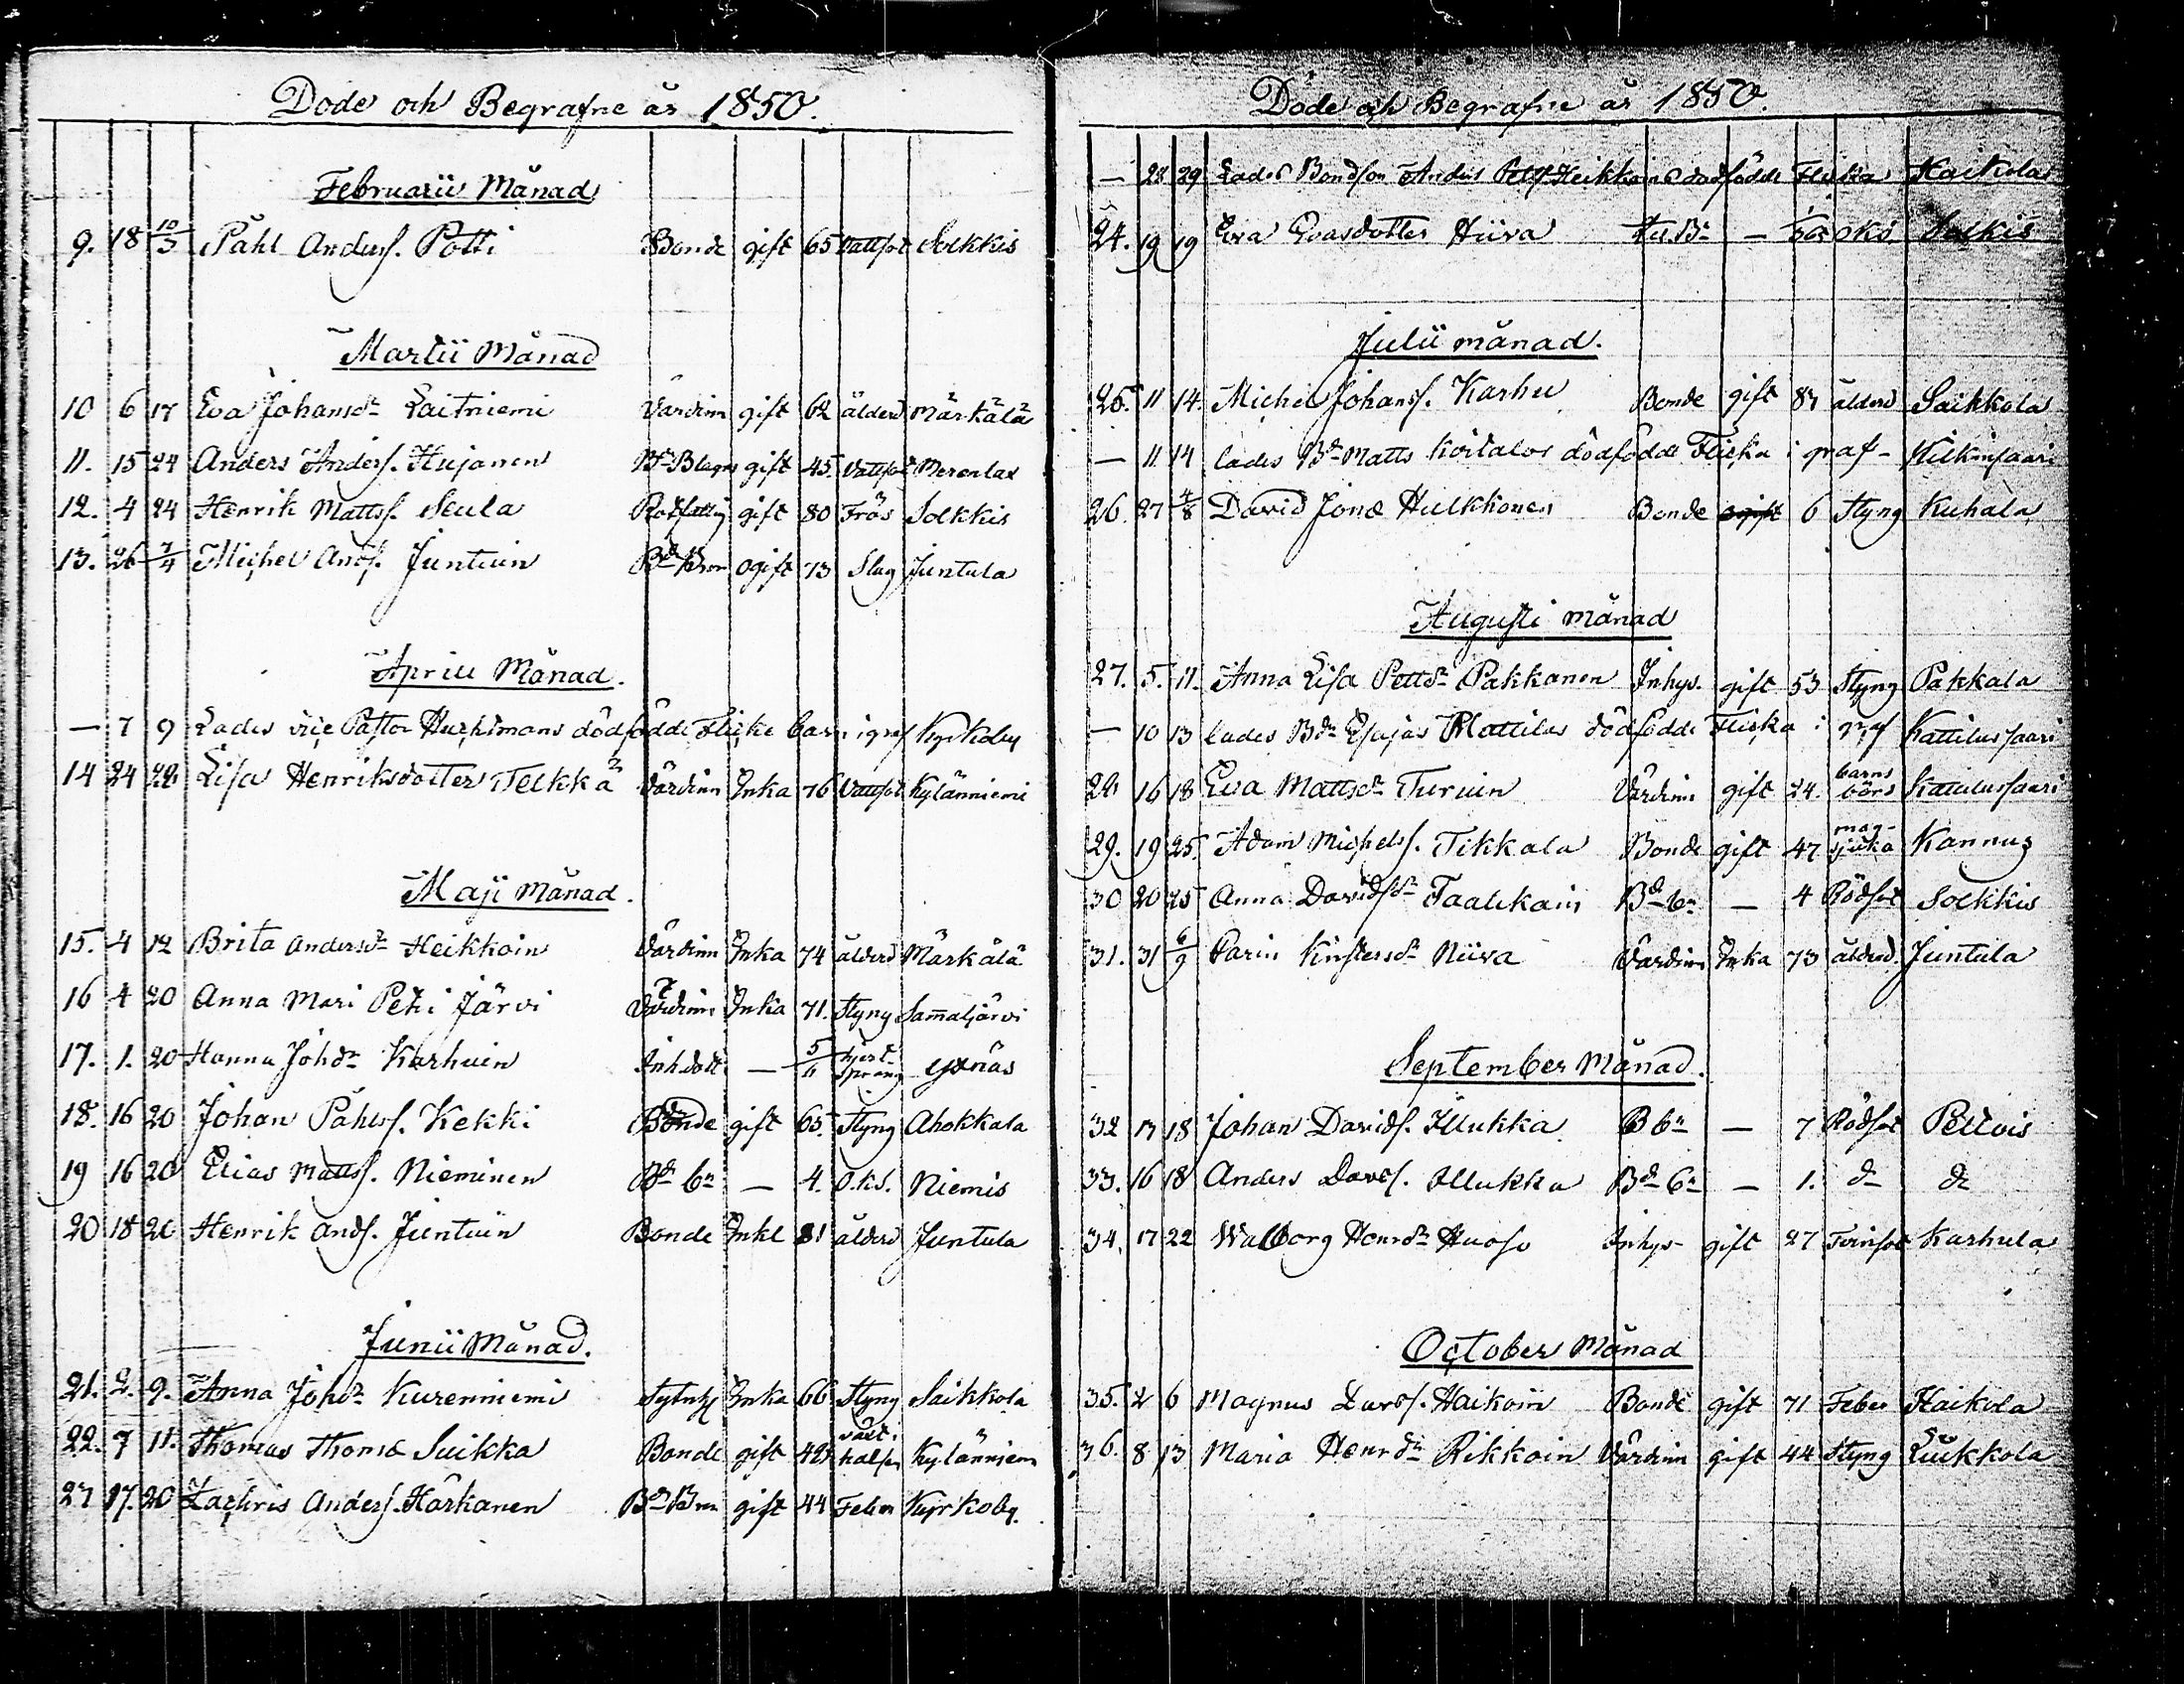 Döde och Begrafne år 1850.
Februarii Månad
9. 18 10/3 Påhl Anders. Potti Bonde gift 65 Vattsot Solkkis
Martii Månad
10 6 17 Eva Johansdr Laitniemi Värdinn gift 62 ålderd Märkälä
11. 15 24 Anders Anders. Hujanen gift 45. Vattsot Merenlax
12. 4 24 Henrik Matts. Seula gift 80 Frås Solkkis
13. 26 7/4 Michel Ands. Juntuin ogift 73 Slag Juntula
Aprill Månad.
— 7 9 Lades vice Pastor dödfödde Flicke barn i graf Kyrkoby
14 24 28 Lisa Henriksdotter Telkkä Värdinn Enka 76 Vattsot Kylänniemi
Maji Månad.
15. 4 12 Brita Andersdr Heikkoin Värdinn Enka 74 ålderd Märkälä
16 4 20 Anna Mari Petri Järvi Värdinn Enka 71. Styng Samaljärvi
17. 1. 20 Hanna Johdr Karhuin Inh.dott — 5/11 yxnäs
18. 16 20 Johan Påhls. Kekki Bonde gift 65. Styng Ahokkala
19 16 20 Elias Matts. Nieminen Bd bn — 4. O.k.s. Niemis
20 18 20 Henrik Ands. Juntuin Bonde Enkl 81 ålderd Juntula
Junii Månad.
21. 2. 9. Anna Johdr Kurenniemi Enka 66 Styng Saikkola
22. 7 11. Thomas Thomæ Suikka Bonde gift värk i halsen Kylänniem
23 17. 20 Zachris Anders. Härkänen gift 44 Feber Kyrkoby.
Döde och Begrafne år 1850.
— 28 29 Lades Bondson Anders Heikkoins dödfödde Flicka Haikola
24. 19 19 Eva Evasdotter Hiiva — oks Solkkis
Julii månad.
25. 11 14. Michel Johans. Karhu Bonde gift 87 ålderd Saikkola
— 11 14 lades Bd Matts Koitalas dödfödde Flicka i graf - Kilkinsaari
26. 27 4/8 David Jonæ Hulkkonen Bonde ogift 6 Styng Kuhala
Augusti månad
27. 5. 11. Anna Lisa Pettdr Pakkanen Inhys. gift 53 Styng Pakkala
— 10 13 lades Bdr Esajas Mattilas dödfödde Flicka i graf Kattilussaari
28 16 18 Eva Mattsdr Turuin Värdinn gift 24. barns börd Kattilussaari
29. 19 25. Adam Michels. Tikkala Bonde gift 47 mag- sjuka Kannus
30 20 25 Anna Davidsdr Taalikain Bd bn — 4 Rödsot Solkkis
31. 31 6/9 Carin Kirstersdr Niiva Värdinn Enka 73 ålderd. Juntula
September Månad.
32 13 18 Johan Davids. Illukka B bn — 7 Rödsot Pellois
33. 16 18 Anders Davds. Illukka Bd bn — 1. do do
34. 17 22 Walborg Henrdr Huoso Inhys gift 27 Tvinsot Karhula
October Månad
35. 2 6 Magnus Lars. Haikoin Bonde gift 71 Feber Haikola
36. 8 13 Maria Henrdr Rikkoin Värdinn gift 44 Styng Liukkola